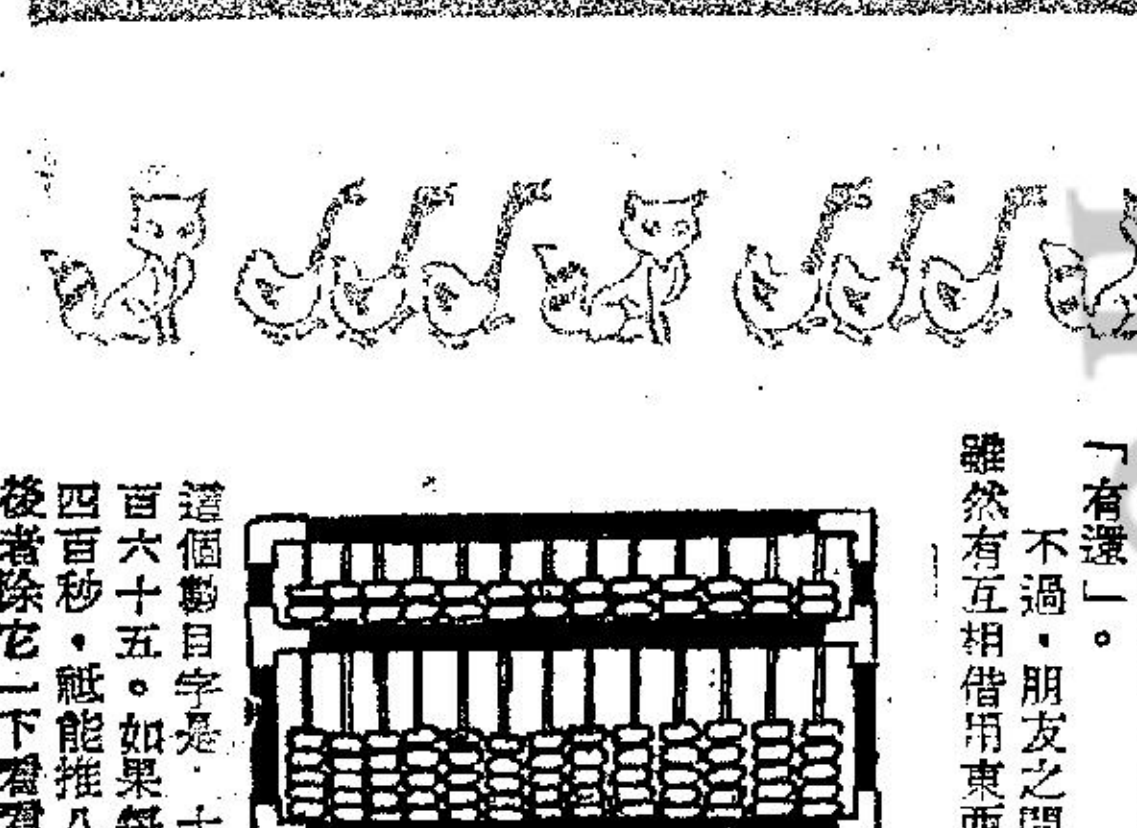 「有還」。
不過，朋友之間
雖然有互相借用東西
這個數目字是，十
百六十五。如果每
四百秒，祗能推八
後者除它一下看看